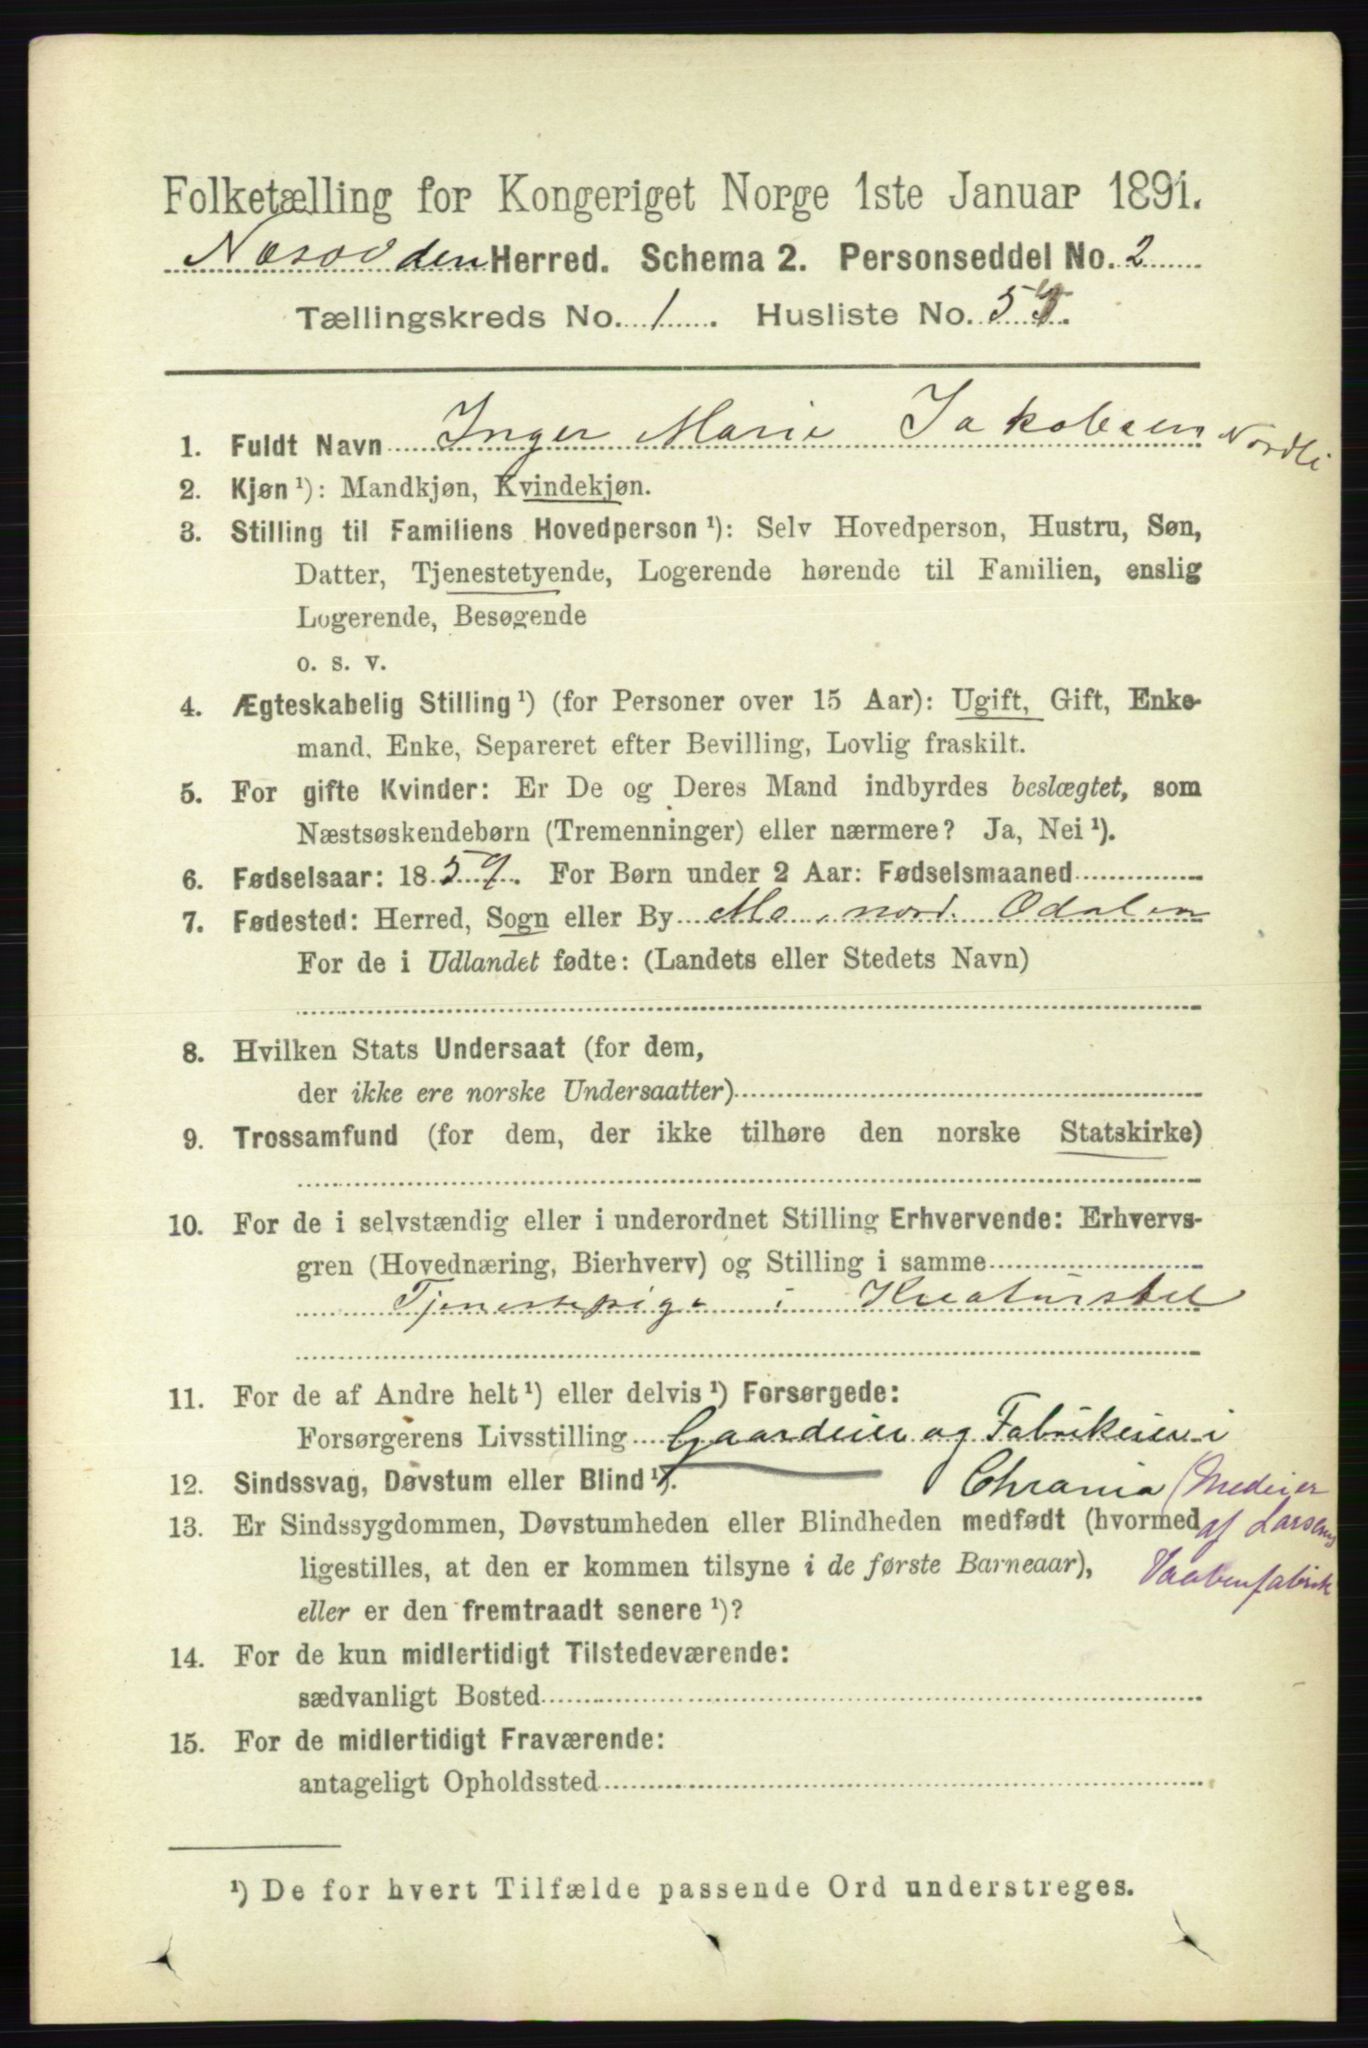 Folketælling for Kongeriget Norge 1ste Januar 1891.
Næsodden Herred. Schema 2. Personseddel No. 2
Tællingskreds No. 1. Husliste No.
1. Fuldt Navn Inger Marie Jakobsen Nordli
2. Kjøn ¹): Mandkjøn, Kvindekjøn.
3. Stilling til Familiens Hovedperson ¹): Selv Hovedperson, Hustru, Søn,
Datter, Tjenestetyende, Logerende hørende til Familien, enslig
Logerende, Besøgende
o. s. v.
4. Ægteskabelig Stilling ¹) (for Personer over 15 Aar): Ugift, Gift, Enke-
mand, Enke, Separeret efter Bevilling, Lovlig fraskilt.
5. For gifte Kvinder: Er De og Deres Mand indbyrdes beslægtet, som
Næstsøskendebørn (Tremenninger) eller nærmere? Ja, Nei ¹).
6. Fødselsaar: 1859. For Børn under 2 Aar: Fødselsmaaned
7. Fødested: Herred, Sogn eller By Mo, nord. Odalen
For de i Udlandet fødte: (Landets eller Stedets Navn)
8. Hvilken Stats Undersaat (for dem,
der ikke ere norske Undersaatter)
9. Trossamfund (for dem, der ikke tilhøre den norske Statskirke)
10. For de i selvstændig eller i underordnet Stilling Erhvervende: Erhvervs-
gren (Hovednæring, Bierhverv) og Stilling i samme
Tjenestepige i Kreaturstel
11. For de af Andre helt ¹) eller delvis ¹) Forsørgede:
Forsørgerens Livsstilling Gaardeier og Fabrikeier i
12. Sindssvag, Døvstum eller Blind ¹). Chrania (Medeier
13. Er Sindssygdommen, Døvstumheden eller Blindheden medfødt (hvormed af Larsens
ligestilles, at den er kommen tilsyne i de første Barneaar), Vaabenfabrik
eller er den fremtraadt senere ¹)?
14. For de kun midlertidigt Tilstedeværende:
sædvanligt Bosted
15. For de midlertidigt Fraværende:
antageligt Opholdssted
¹) De for hvert Tilfælde passende Ord understreges.